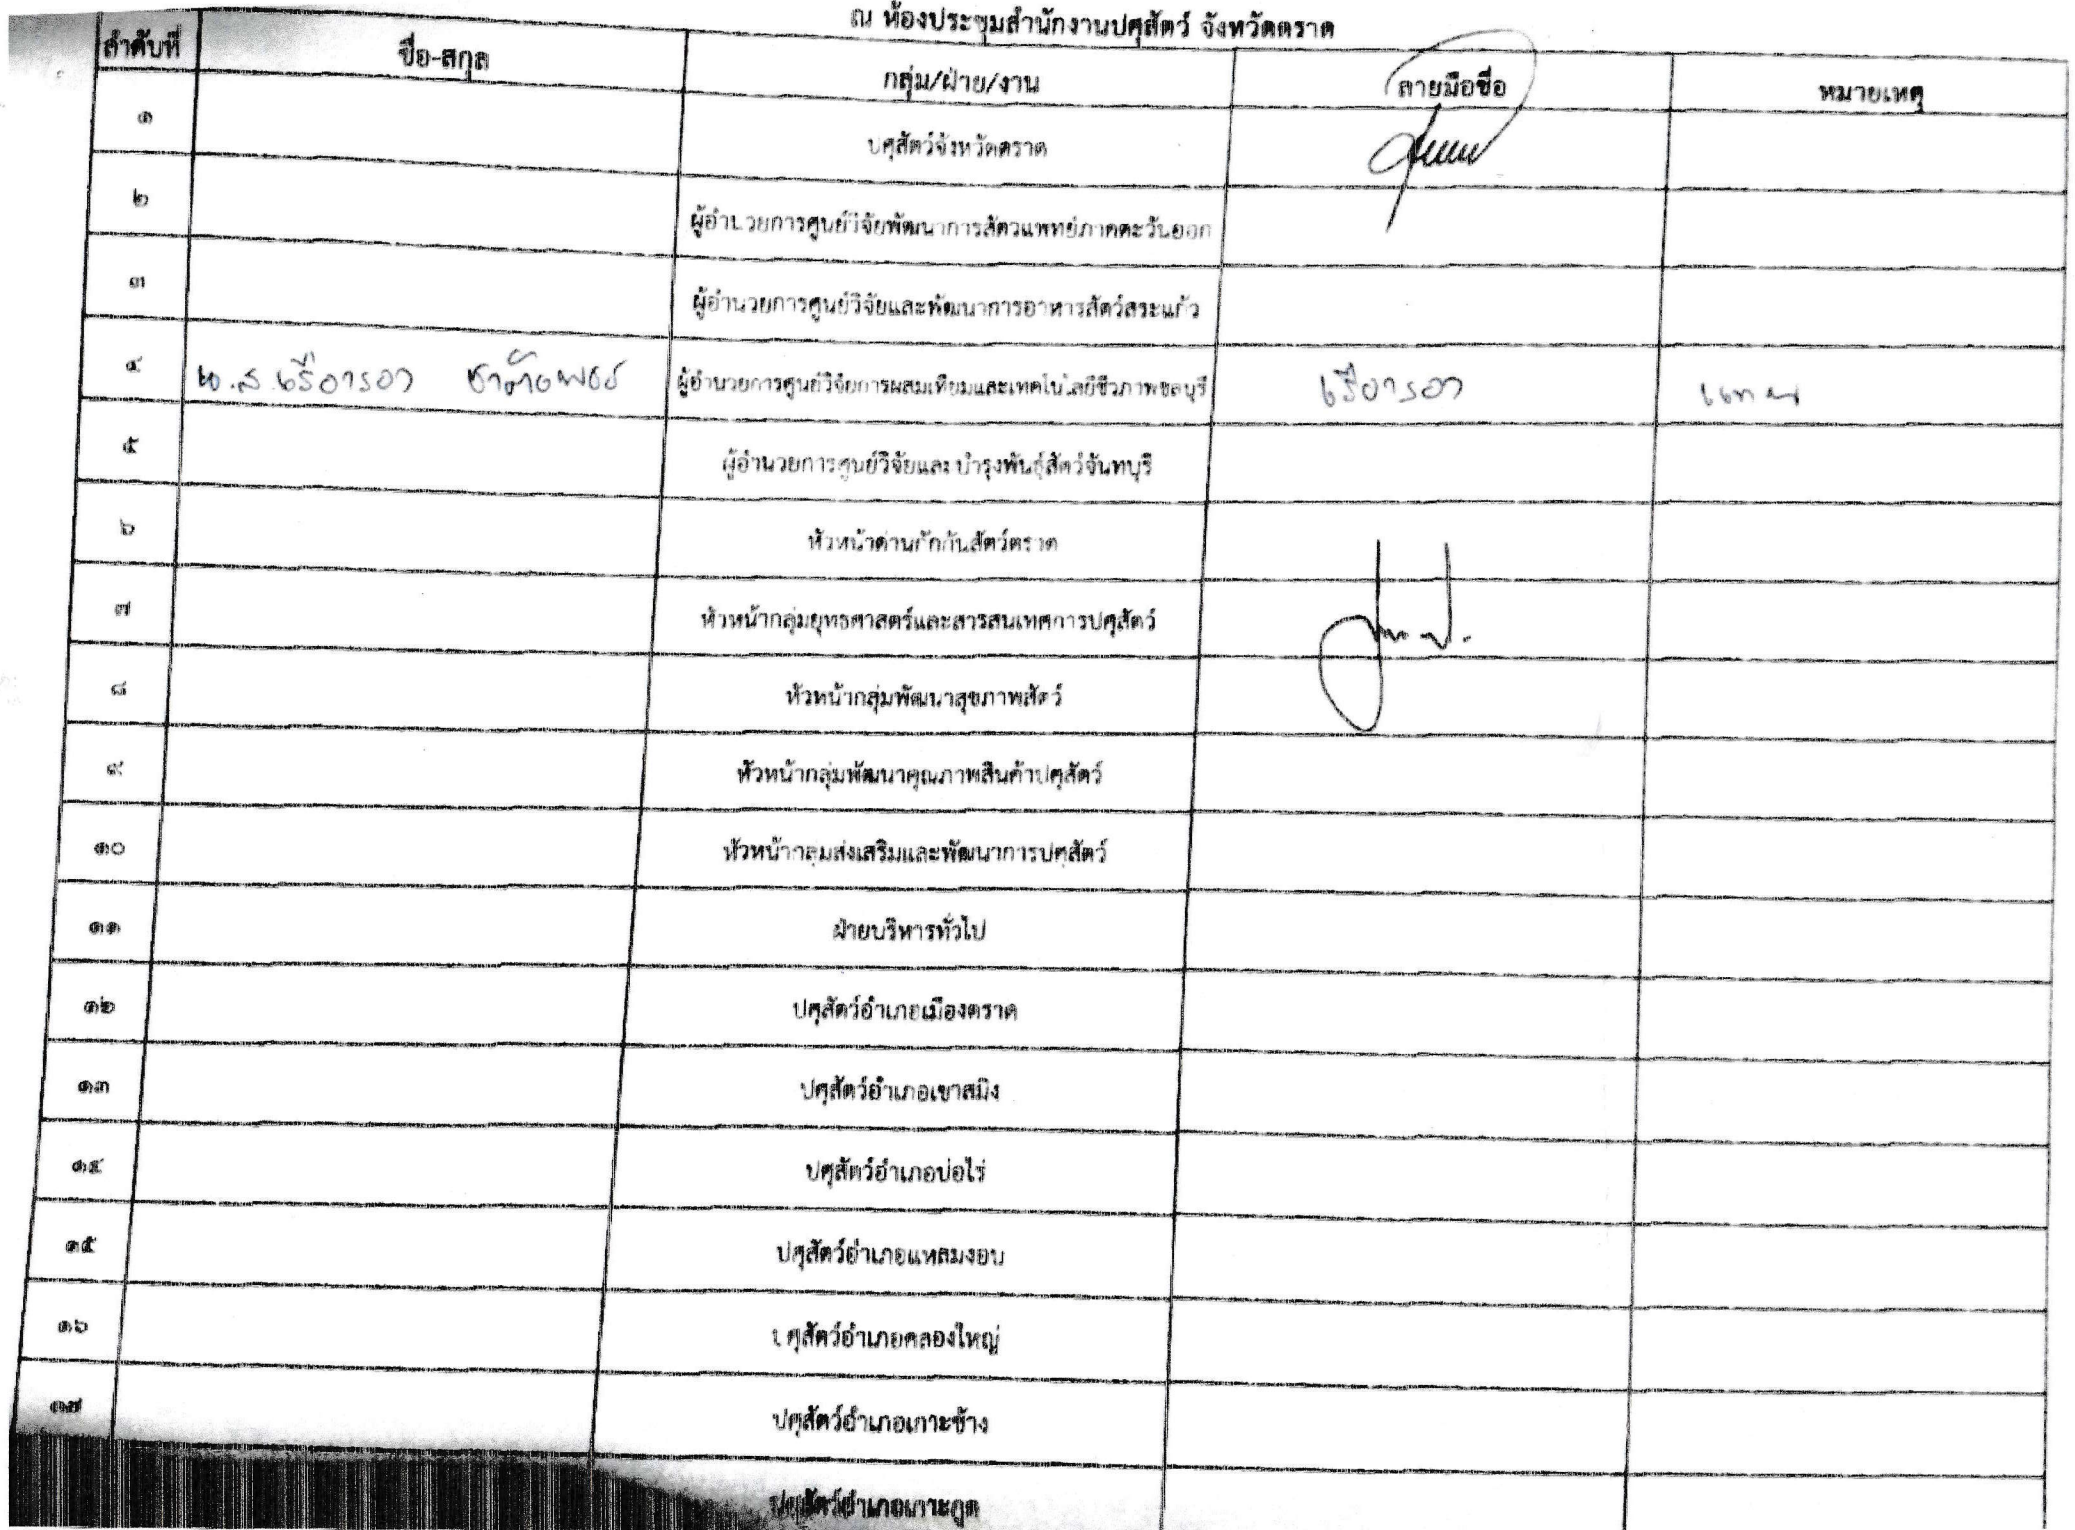 ณ ห้องประชุมสำนักงานปศุสัตว์ จังหวัดตราด
ลำดับที่ ชื่อ-สกุล กลุ่ม/ฝ่าย/งาน ลายมือชื่อ หมายเหตุ
๑ ปศุสัตว์จังหวัดตราด
๒ ผู้อำนวยการศูนย์วิจัยพัฒนาการสัตวแพทย์ภาคตะวันออก
๓ ผู้อำนวยการศูนย์วิจัยและพัฒนาการอาหารสัตว์สระแก้ว
๔ น.ส. ผู้อำนวยการศูนย์วิจัยการผสมเทียมและเทคโนโลยีชีวภาพชลบุรี แทน
๕ ผู้อำนวยการศูนย์วิจัยและบำรุงพันธุ์สัตว์จันทบุรี
๖ หัวหน้าด่านกักกันสัตว์ตราด
๗ หัวหน้ากลุ่มยุทธศาสตร์และสารสนเทศการปศุสัตว์
๘ หัวหน้ากลุ่มพัฒนาสุขภาพสัตว์
๙ หัวหน้ากลุ่มพัฒนาคุณภาพสินค้าปศุสัตว์
๑๐ หัวหน้ากลุ่มส่งเสริมและพัฒนาการปศุสัตว์
๑๑ ฝ่ายบริหารทั่วไป
๑๒ ปศุสัตว์อำเภอเมืองตราด
๑๓ ปศุสัตว์อำเภอเขาสมิง
๑๔ ปศุสัตว์อำเภอบ่อไร่
๑๕ ปศุสัตว์อำเภอแหลมงอบ
๑๖ ปศุสัตว์อำเภอคลองใหญ่
๑๗ ปศุสัตว์อำเภอเกาะช้าง
ปศุสัตว์อำเภอเกาะกูด